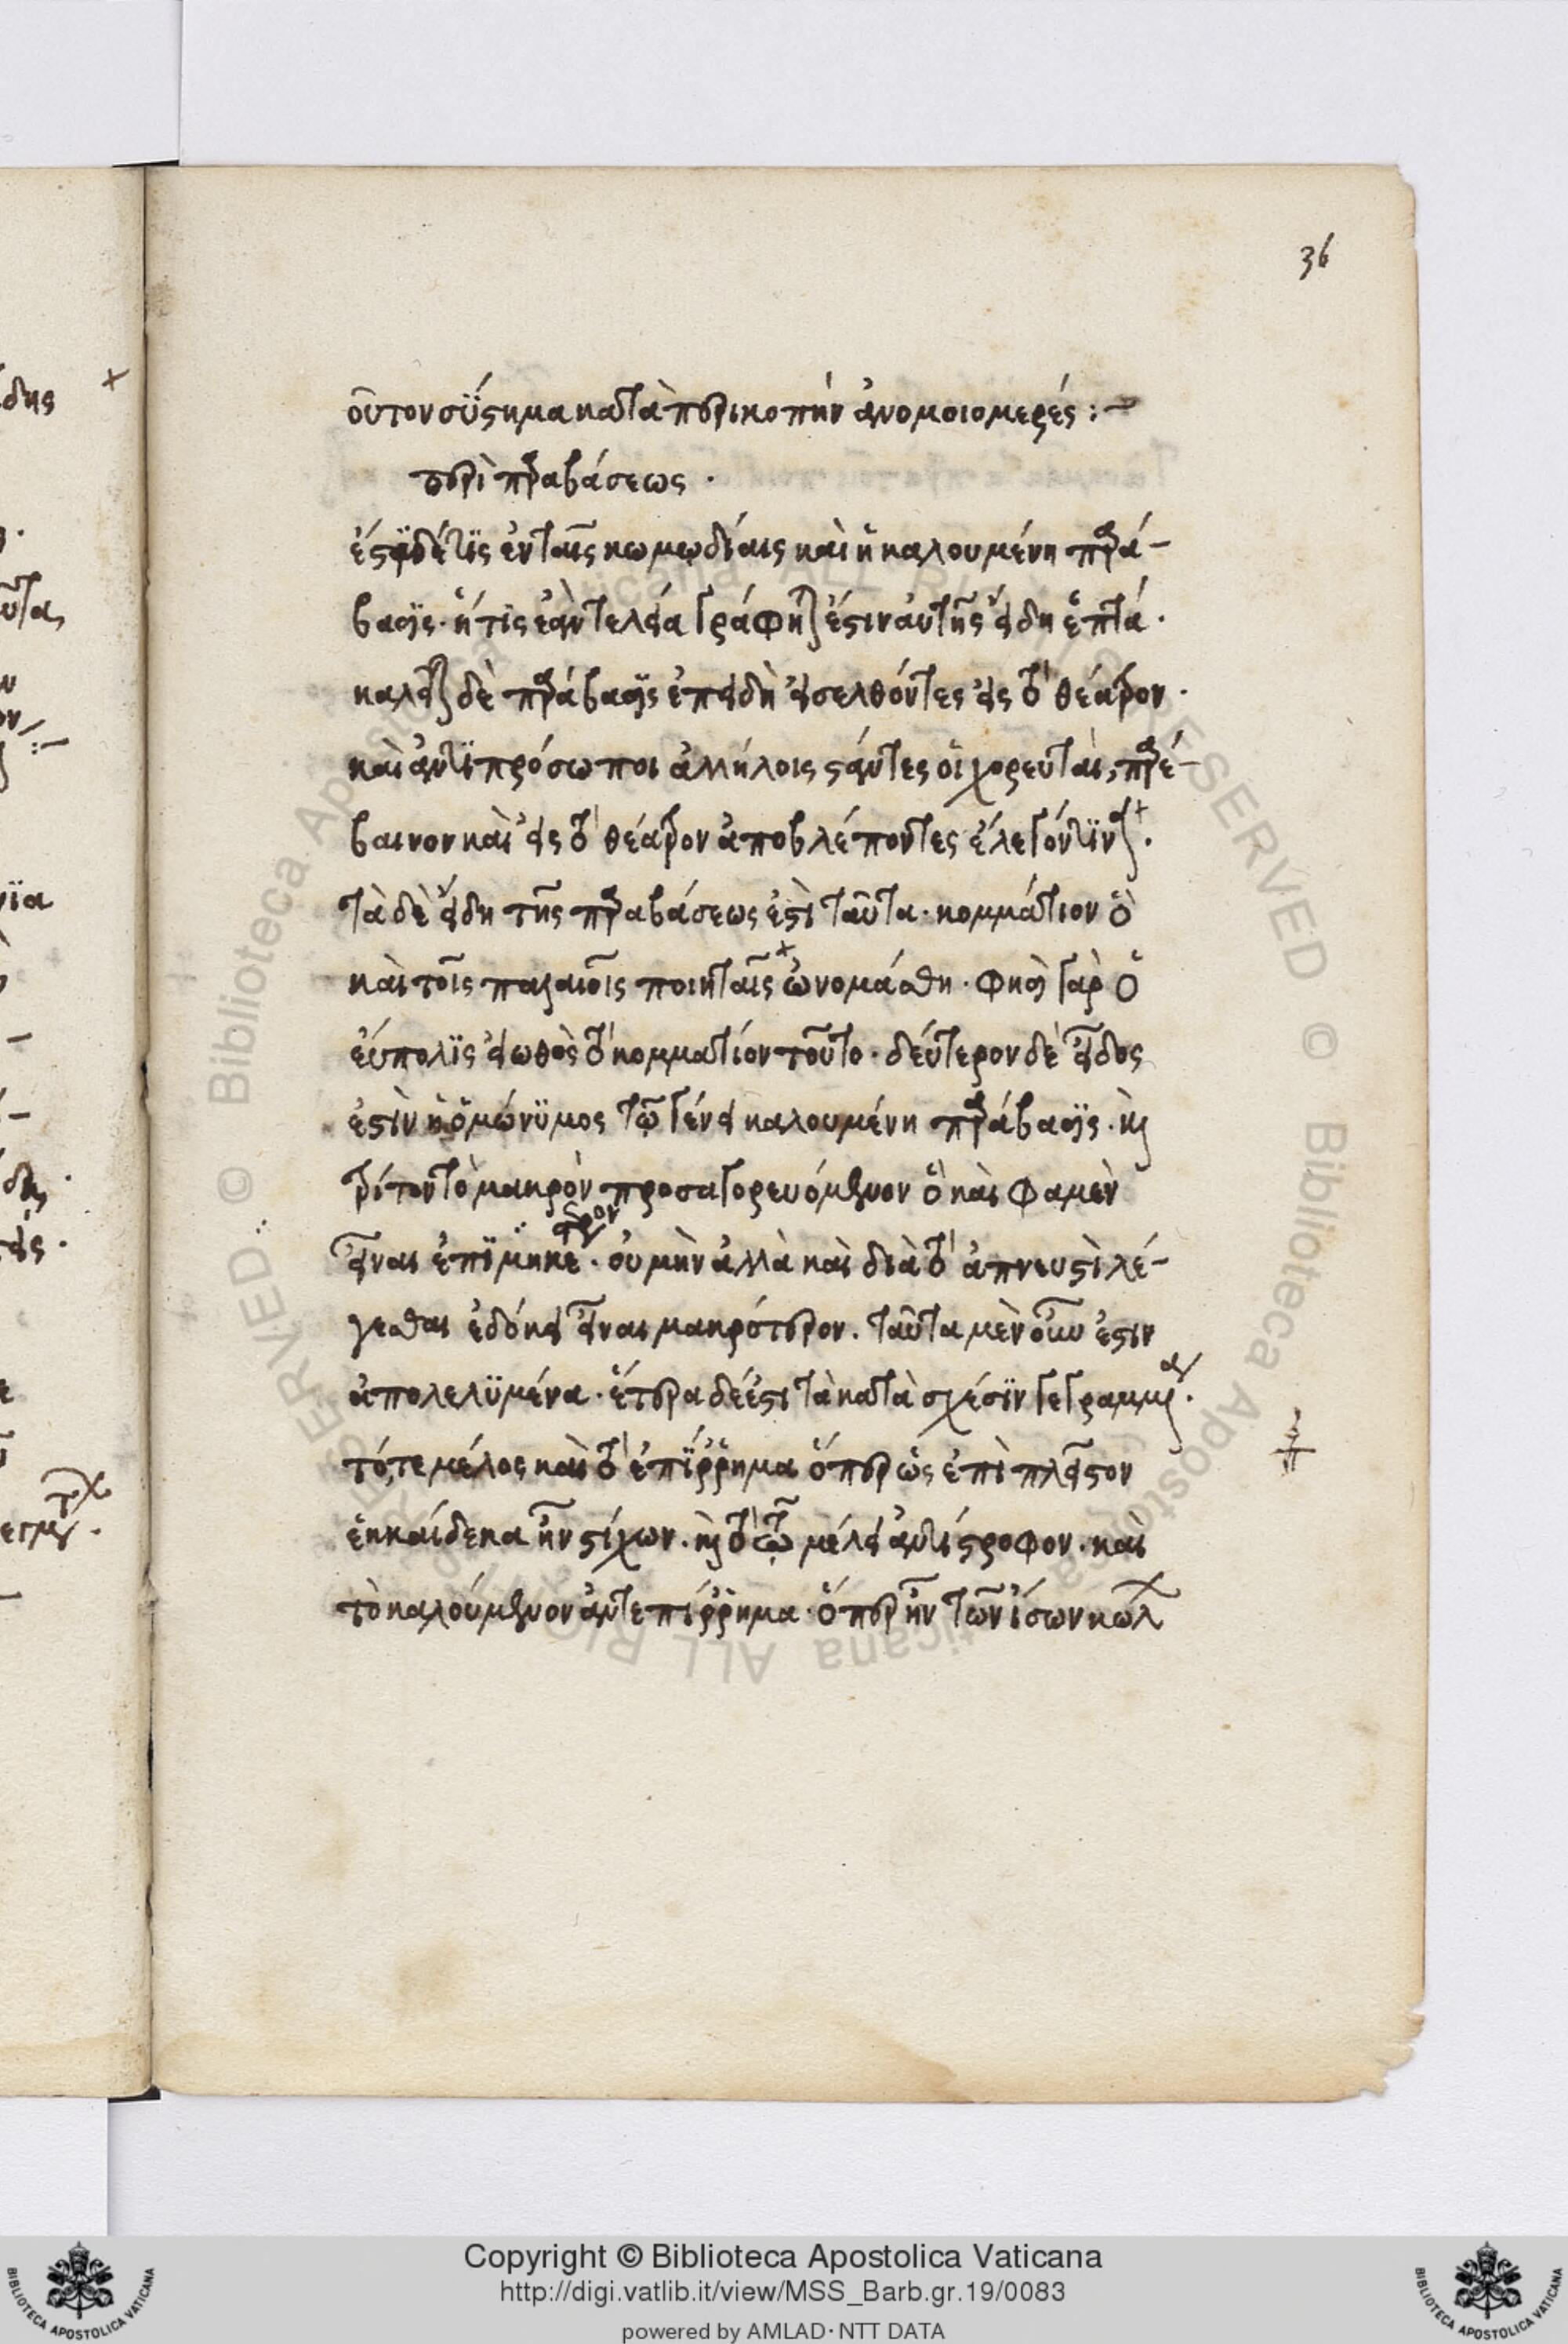 36
οὗτον σύστημα κατὰ περικοπὴν ἀνομοιομερές :~
περὶ παραβάσεως .
ἔστι δέ τις ἐν ταῖς κωμωδίαις καὶ ἡ καλουμένη παρά-
βασις · ἥτις ἐὰν τελεία γράφηται ἔστιν αὐτῆς εἴδη ἑπτά ·
καλεῖται δὲ παράβασις ἐπειδὴ εἰσελθόντες εἰς τὸ θέατρον ·
καὶ ἀντιπρόσωποι ἀλλήλοις στάντες οἱ χορευταὶ, παρέ-
βαινον καὶ εἰς τὸ θέατρον ἀποβλέποντες ἔλεγόν τινα .
τὰ δὲ εἴδη τῆς παραβάσεως ἐστὶ ταῦτα · κομμάτιον ὃ
καὶ τοῖς παλαιοῖς ποιηταῖς ὠνομάσθη · φησὶ γὰρ ὁ
εὔπολις εἰωθὸς τὸ κομμάτιόν τοῦτο · δεύτερον δὲ εἶδος
ἐστὶν ἡ ὁμώνυμος τῷ γένει καλουμένη παράβασις · καὶ
τρίτον τὸ μακρὸν προσαγορευόμενον ὃ καὶ φαμὲν
εἶναι ἐπιμηκέστερον · οὐ μὴν ἀλλὰ καὶ διὰ τὸ ἀπνευστὶ λέ-
γεσθαι ἐδόκει εἶναι μακρότερον . ταῦτα μὲν οὖν ἐστιν
ἀπολελυμένα · ἕτερα δέ ἐστι τὰ κατὰ σχέσιν γεγραμμένα .
τό τε μέλος καὶ τὸ ἐπίρρημα ὅπερ ὡς ἐπὶ πλεῖστον
ἑκκαίδεκα ἦν στίχων · καὶ τὸ τῷ μέλει ἀντίστροφον · καὶ
τὸ καλούμενον ἀντεπίρρημα · ὅπερ ἦν τῶν ἴσων κώλ
Copyright © Biblioteca Apostolica Vaticana
http://digi.vatlib.it/view/MSS_Barb.gr.19/0083
powered by AMLAD·NTT DATA